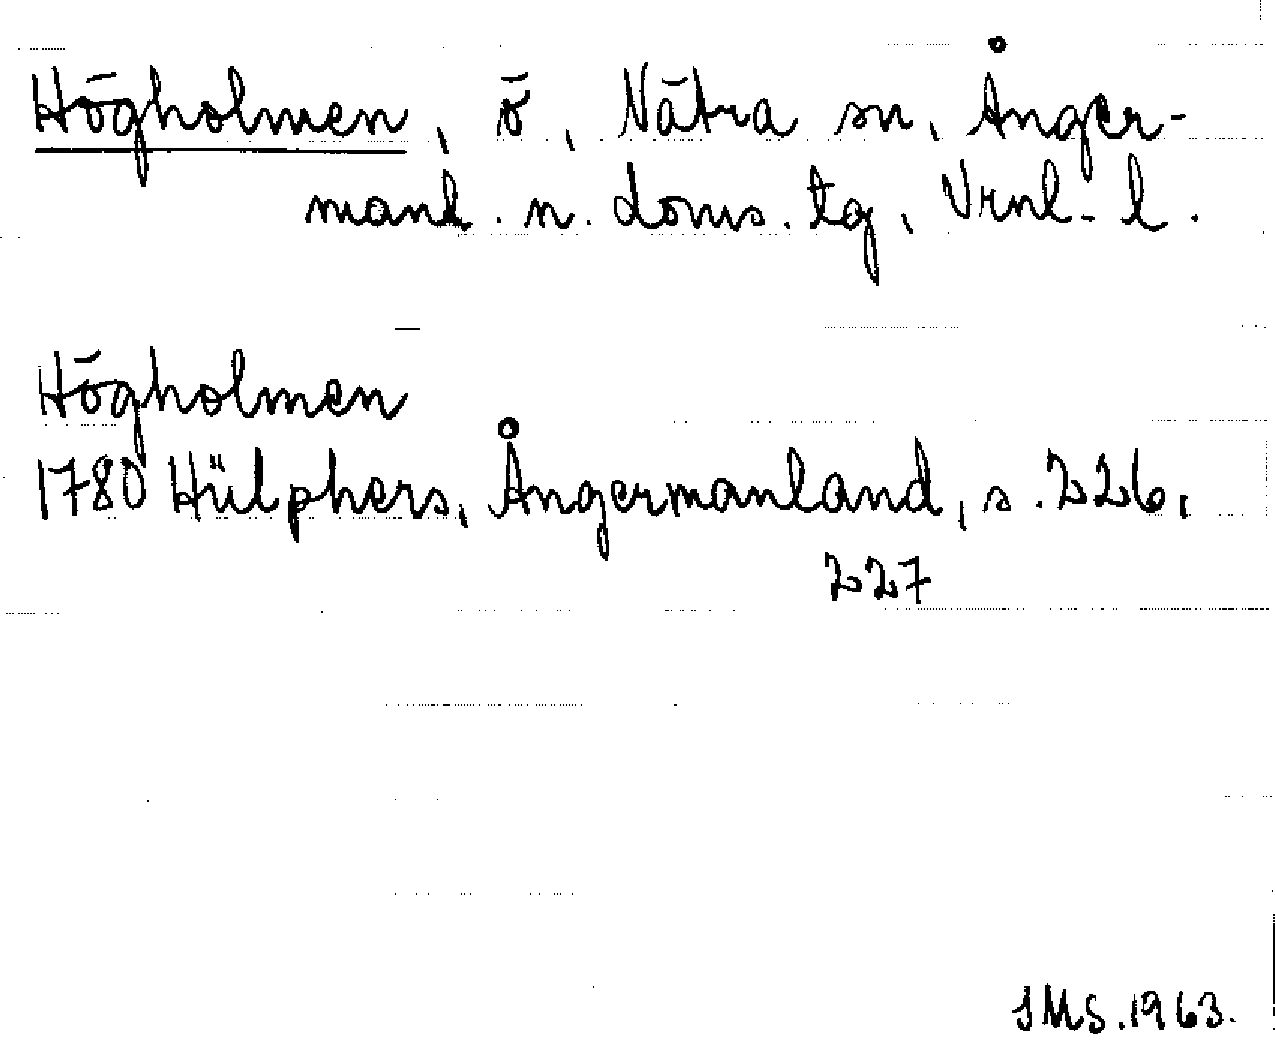 Högholmen, ö, Nätra sn, Ånger-
manl. n. doms. tg, Vrnl. l.
Högholmen
1780 Hülphers, Ångermanland, s. 226,
227
SMS. 1963.